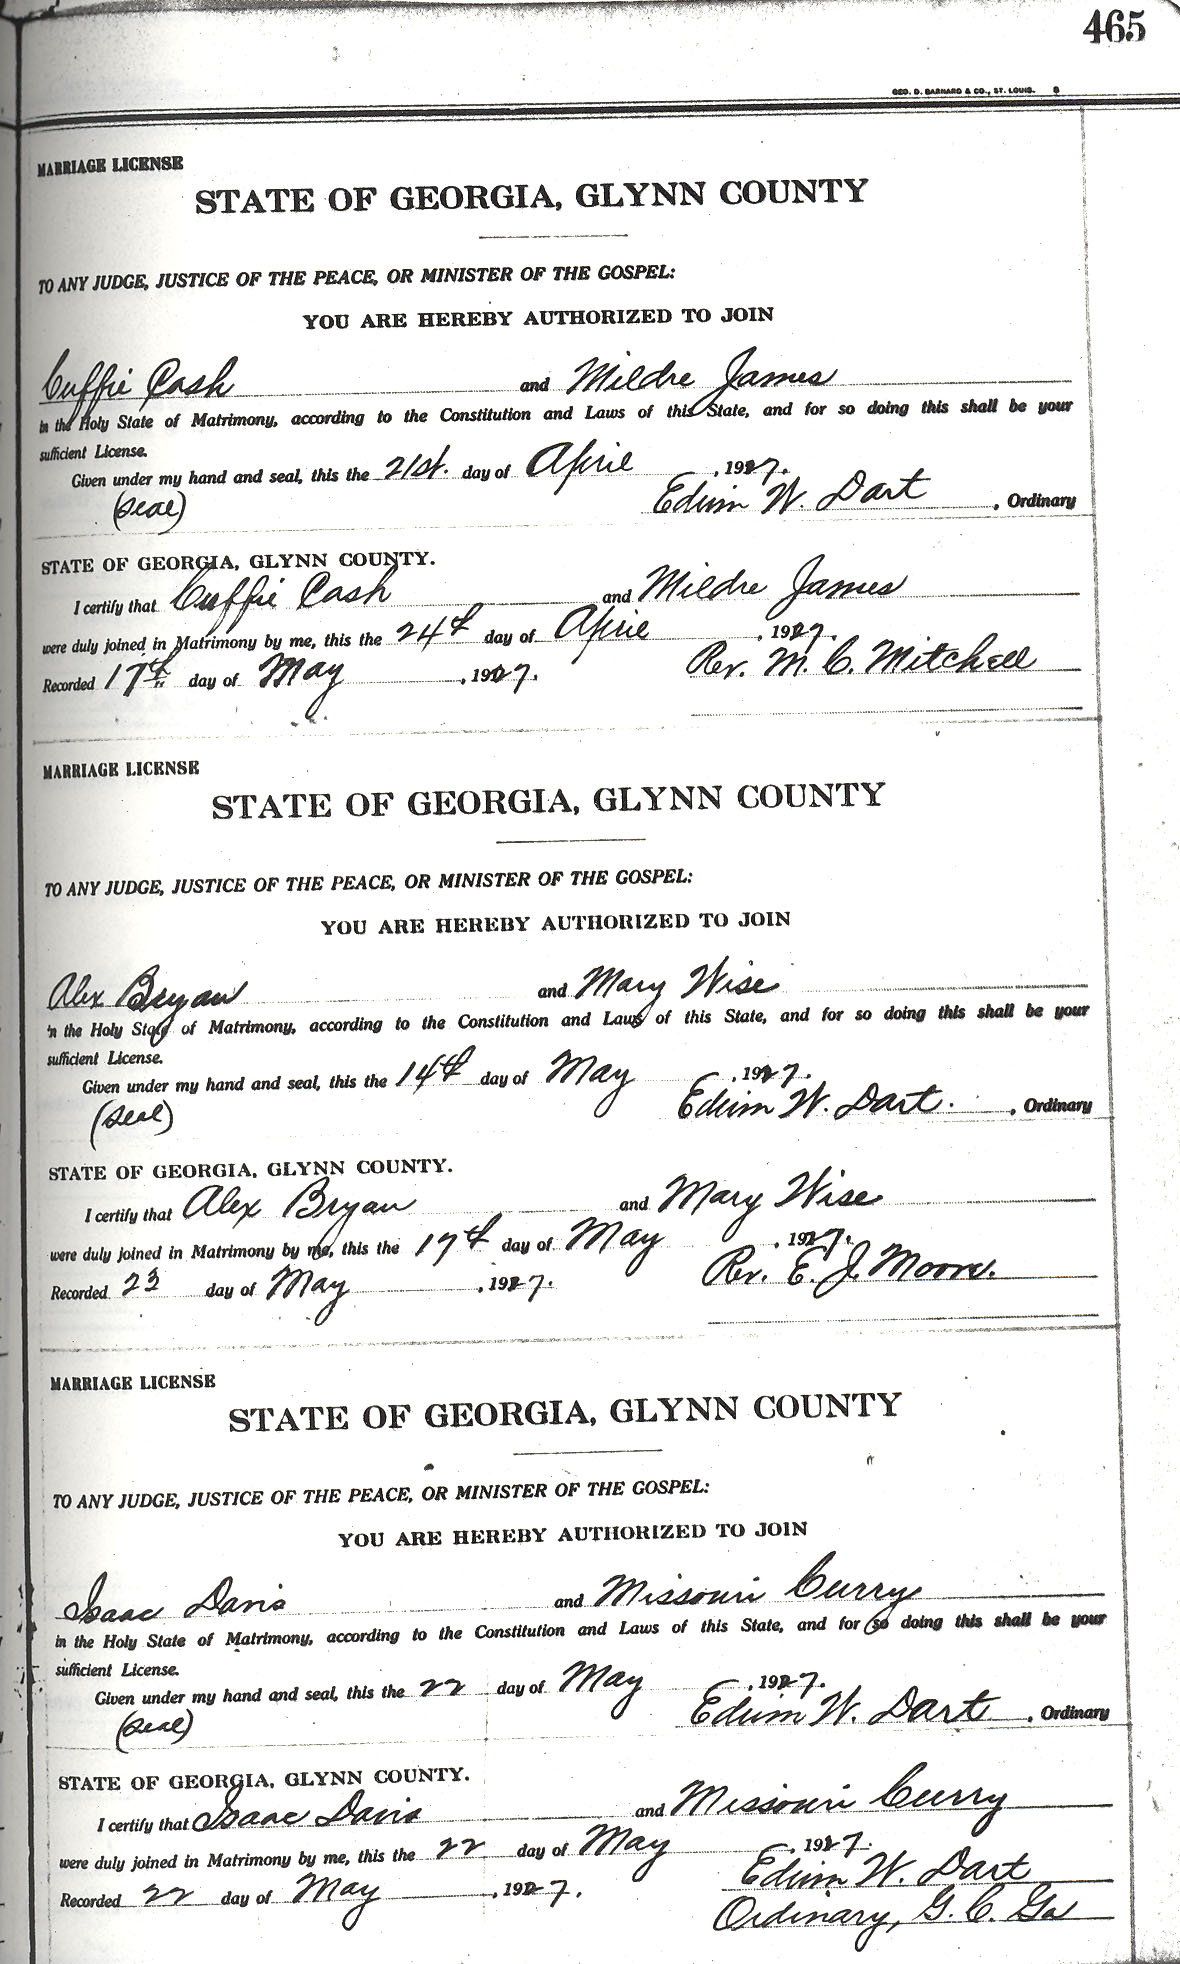 465
GEO. D. BARNARD & CO., ST. LOUIS. 8
MARRIAGE LICENSE
STATE OF GEORGIA, GLYNN COUNTY
TO ANY JUDGE, JUSTICE OF THE PEACE, OR MINISTER OF THE GOSPEL:
YOU ARE HEREBY AUTHORIZED TO JOIN
Cuffie Cash and Mildre James
in the Holy State of Matrimony, according to the Constitution and Laws of this State, and for so doing this shall be your
sufficient License.
Given under my hand and seal, this the 21st. day of April, 1927.
(seal) Edwin W. Dart, Ordinary
STATE OF GEORGIA, GLYNN COUNTY.
I certify that Cuffie Cash and Mildre James
were duly joined in Matrimony by me, this the 24th day of April, 1927.
Rev. M. C. Mitchell
Recorded 17th day of May, 1927.
MARRIAGE LICENSE
STATE OF GEORGIA, GLYNN COUNTY
TO ANY JUDGE, JUSTICE OF THE PEACE, OR MINISTER OF THE GOSPEL:
YOU ARE HEREBY AUTHORIZED TO JOIN
Alex Bryan and Mary Wise
in the Holy State of Matrimony, according to the Constitution and Laws of this State, and for so doing this shall be your
sufficient License.
Given under my hand and seal, this the 14th day of May, 1927.
(seal) Edwin W. Dart., Ordinary
STATE OF GEORGIA, GLYNN COUNTY.
I certify that Alex Bryan and Mary Wise
were duly joined in Matrimony by me, this the 17th day of May, 1927.
Rev. E. J. Moore.
Recorded 23 day of May, 1927.
MARRIAGE LICENSE
STATE OF GEORGIA, GLYNN COUNTY
TO ANY JUDGE, JUSTICE OF THE PEACE, OR MINISTER OF THE GOSPEL:
YOU ARE HEREBY AUTHORIZED TO JOIN
Isaac Davis and Missouri Curry
in the Holy State of Matrimony, according to the Constitution and Laws of this State, and for so doing this shall be your
sufficient License.
Given under my hand and seal, this the 22 day of May, 1927.
(seal) Edwin W. Dart, Ordinary
STATE OF GEORGIA, GLYNN COUNTY.
I certify that Isaac Davis and Missouri Curry
were duly joined in Matrimony by me, this the 22 day of May, 1927.
Edwin W. Dart
Recorded 22 day of May, 1927.
Ordinary, G. C. Ga